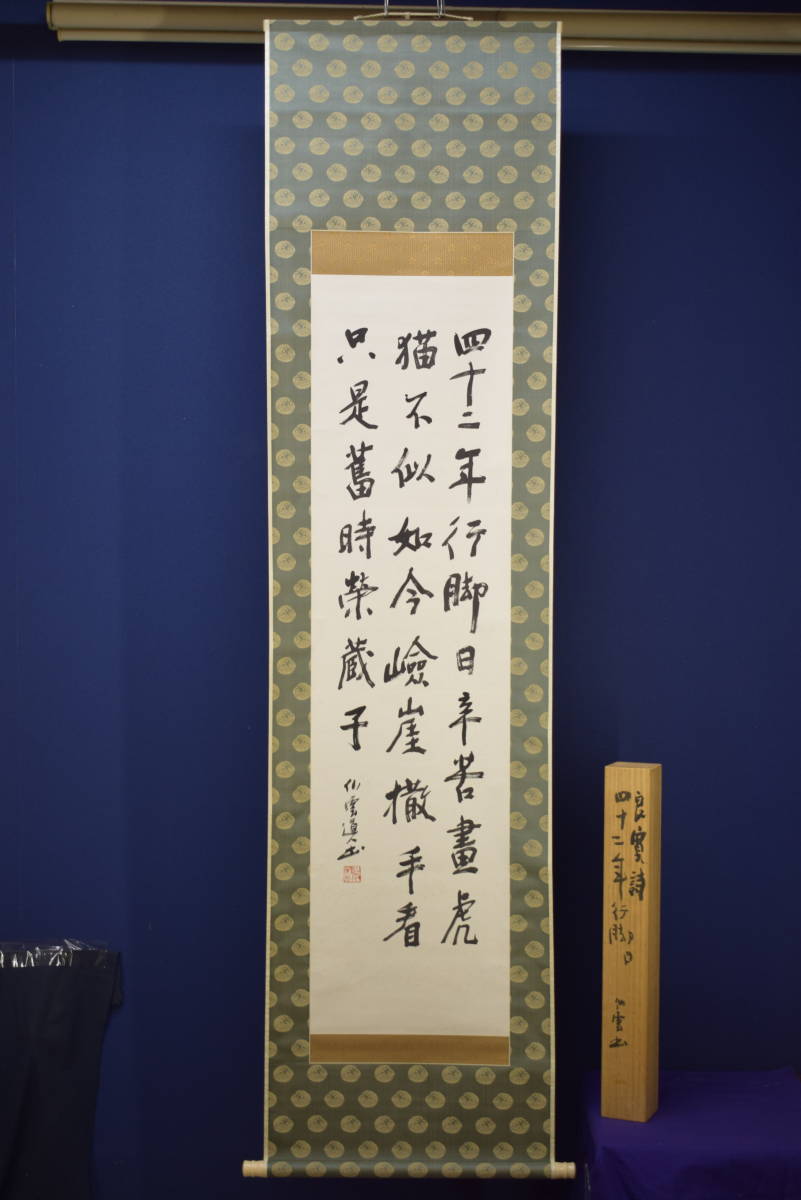 四十二年行脚日辛苦畫虎
猫不似如今嶮崖撒手看
只是舊時榮蔵子
仙雲道人書
良寛詩
四十二年行脚日
仙雲書